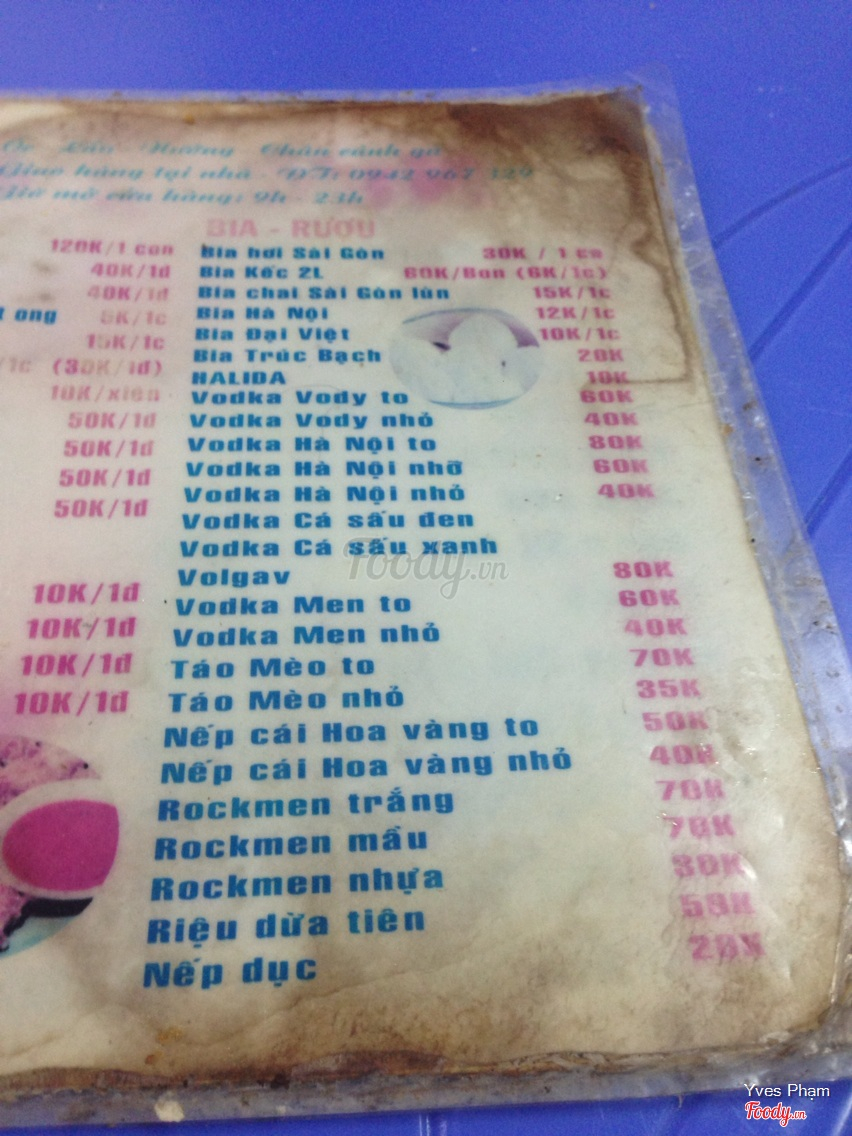 Ốc - Lẩu - Nướng - Chân cánh gà
Giao hàng tại nhà - ĐT: 0942 967 329
Giờ mở cửa hàng: 9h - 23h
BIA - RƯỢU
120K/1 con
40K/1đ
40K/1đ
t ong 5K/1c
15K/1c
/1c (30K/1đ)
10K/xiên
50K/1đ
50K/1đ
50K/1đ
50K/1đ
10K/1đ
10K/1đ
10K/1đ
10K/1đ
Bia hơi Sài Gòn 30K / 1 ca
Bia Kốc 2L 60K/Bom (6K/1c)
Bia chai Sài Gòn lùn 15K/1c
Bia Hà Nội 12K/1c
Bia Đại Việt 10K/1c
Bia Trúc Bạch 20K
HALIDA 10K
Vodka Vody to 60K
Vodka Vody nhỏ 40K
Vodka Hà Nội to 80K
Vodka Hà Nội nhỡ 60K
Vodka Hà Nội nhỏ 40K
Vodka Cá sấu đen
Vodka Cá sấu xanh
Volgav 80K
Vodka Men to 60K
Vodka Men nhỏ 40K
Táo Mèo to 70K
Táo Mèo nhỏ 35K
Nếp cái Hoa vàng to 50K
Nếp cái Hoa vàng nhỏ 40K
Rockmen trắng 70K
Rockmen mầu 70K
Rockmen nhựa 30K
Riệu dừa tiên
Nếp dục 20K
Foody.vn
Yves Phạm
Foody.vn